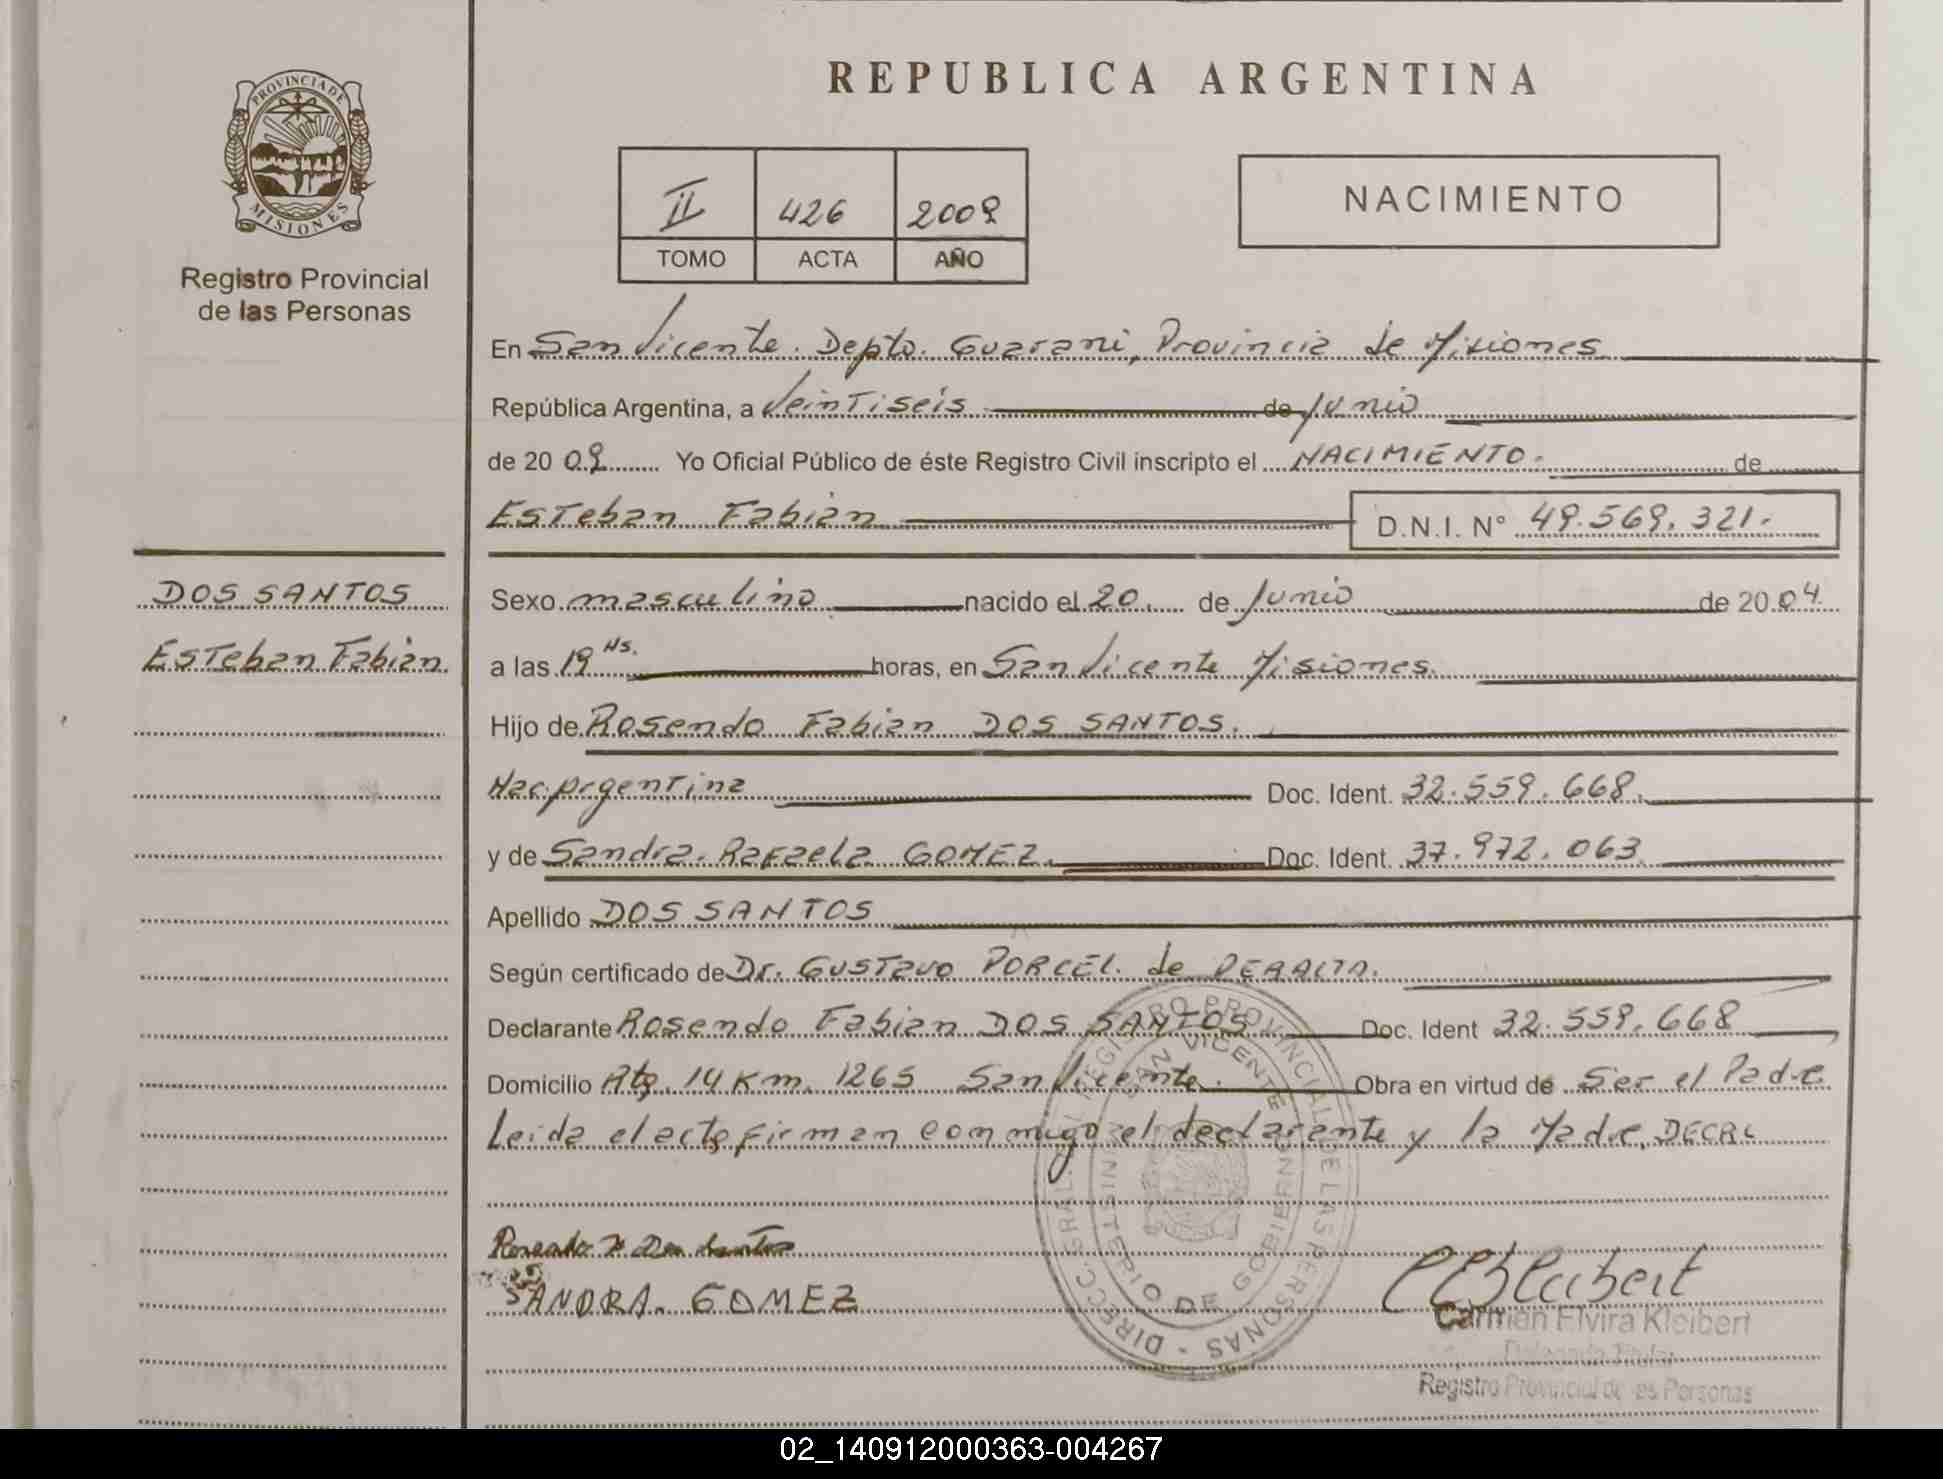 PROVINCIA DE
MISIONES
Registro Provincial
de las Personas
DOS SANTOS
Esteban Fabián.
REPUBLICA ARGENTINA
II 426 2009
TOMO ACTA AÑO
NACIMIENTO
En San Vicente. Depto. Guaraní, Provincia de Misiones
República Argentina, a Veintiseis de Junio
de 20 09 Yo Oficial Público de éste Registro Civil inscripto el NACIMIENTO. de
Esteban Fabián D.N.I. N° 49.569.321.
Sexo masculino nacido el 20. de Junio de 20 04
a las 19 Hs. horas, en San Vicente Misiones.
Hijo de Rosendo Fabian DOS SANTOS.
Nac. Argentina Doc. Ident. 32.559.668.
y de Sandra. Rafaela GOMEZ. Doc. Ident. 37.972.063
Apellido DOS SANTOS
Según certificado de Dr. GUSTavo PORCEL. de PERALTA.
Declarante Rosendo Fabian DOS SANTOS Doc. Ident 32.559.668
Domicilio Rta. 14 Km. 1265 San Vicente. Obra en virtud de Ser el Padre
Leida el acta firman conmigo el declarante y la Madre, DECRL
Rosendo F Dos Santos
SANDRA. GOMEZ
DIREC. GRAL. DEL REGISTRO PROVINCIAL DE LAS PERSONAS -
SAN VICENTE
MINISTERIO DE GOBIERNO
Carmen Elvira Kleibert
Delegada Titular
Registro Provincial de las Personas
02_140912000363-004267